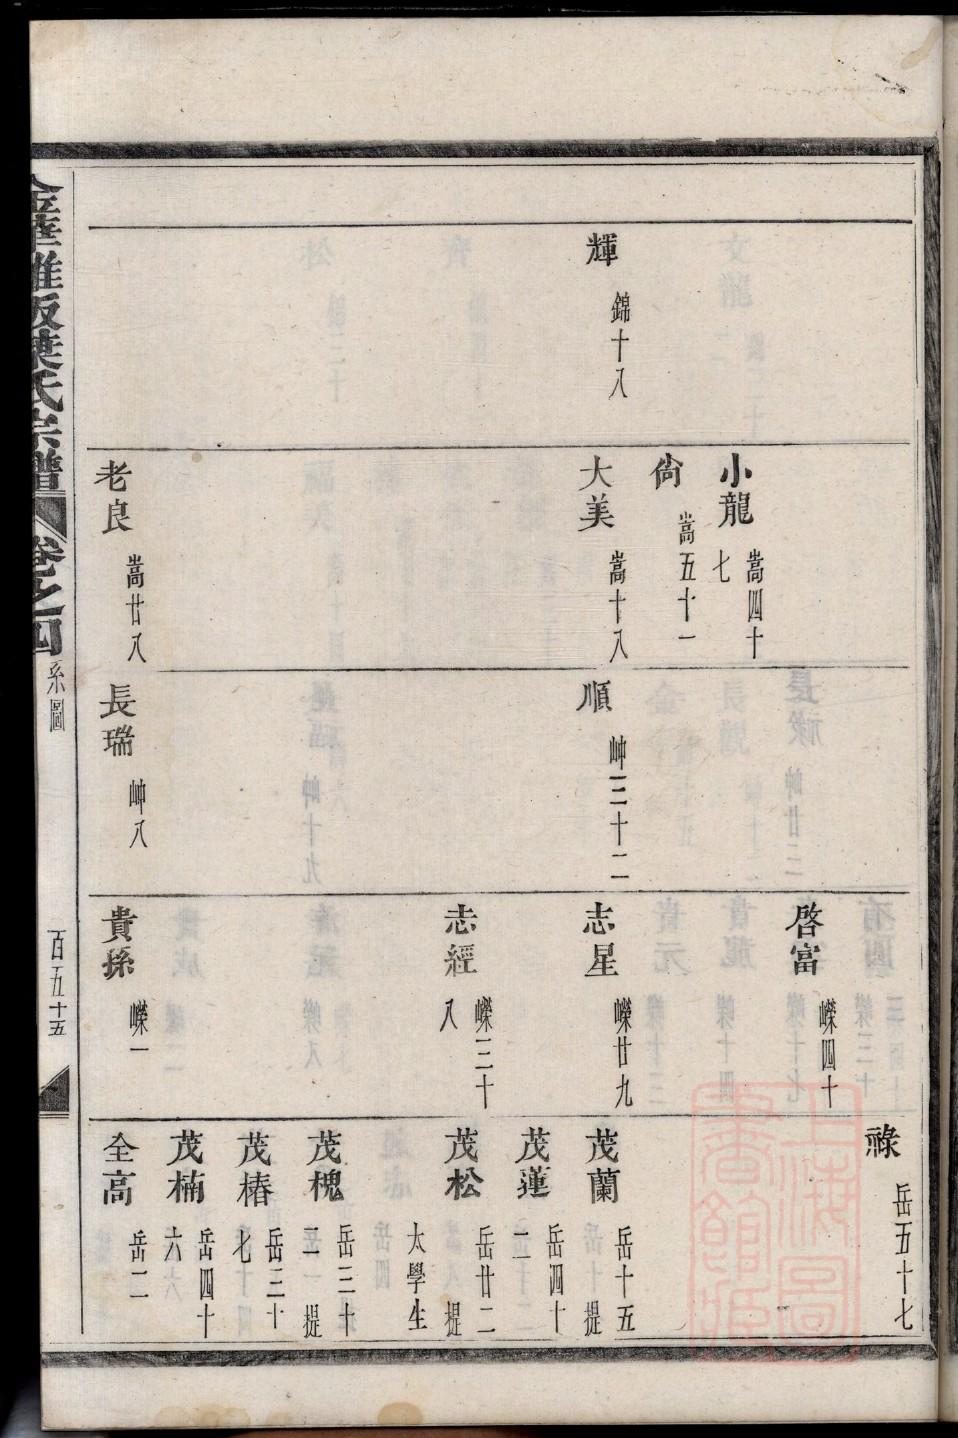 輝 錦十八
小龍 嵩四十七
尙 嵩五十一
大美 嵩十八
老良 嵩廿八
順 岫三十二
長瑞 岫八
啓富 嶸四十
志星 嶸廿九
志經 嶸三十八
貴孫 嶸一
祿 岳五十七
茂蘭 岳十五 提
茂蓮 岳四十二
茂松 岳廿二 提 太學生
茂槐 岳三十二 提
茂椿 岳三十七
茂楠 岳四十六
全高 岳二
葉氏宗譜 卷之四 系圖 百五十五